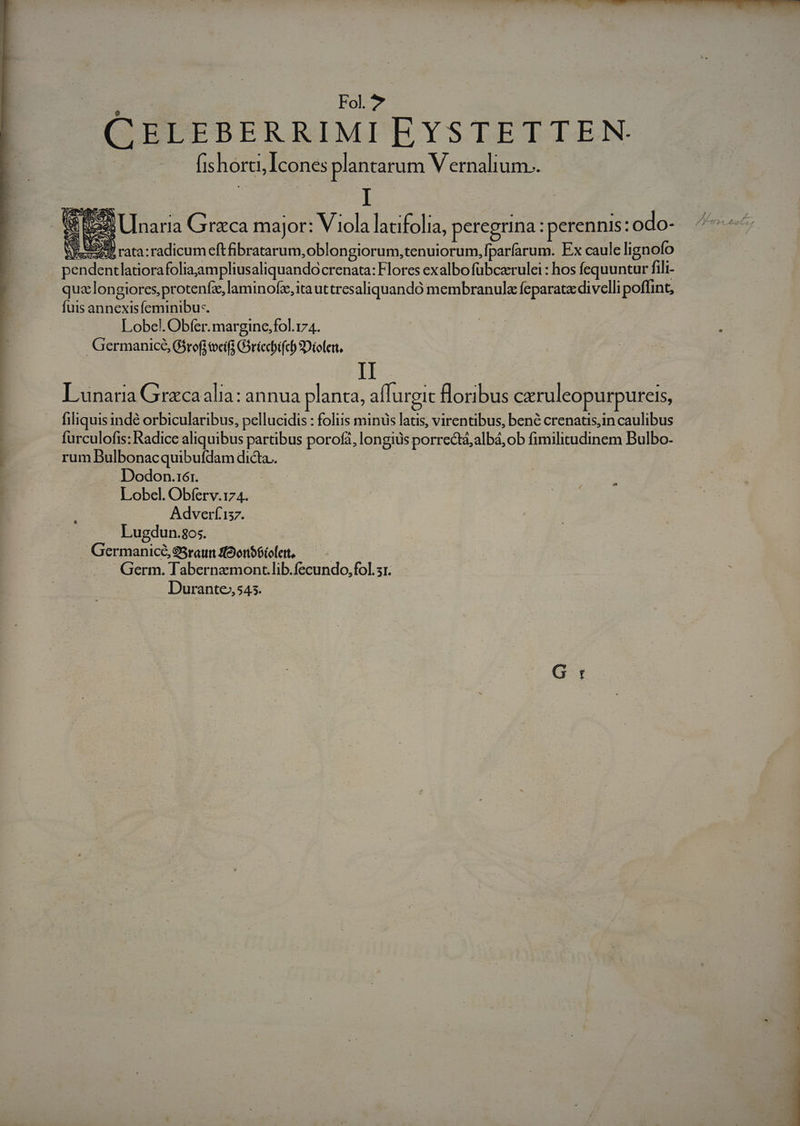 Fol. 7
CELEBERRIMI EYSTETTEN-
ſis horti, Icones plantarum Vernalium.
I
LUnaria Græca major: Viola latifolia, peregrina: perennis: odo-
rata: radicum eſt fibratarum, oblongiorum, tenuiorum, ſparſarum. Ex caule lignoſo
pendent latiora folia, amplius aliquandò crenata: Flores ex albo ſubcærulei: hos ſequuntur ſili-
quæ longiores, protenſæ, laminoſæ, ita ut tres aliquandó membranulæ ſeparatæ divelli poſſint,
ſuis annexis ſeminibus.
Lobel. Obſer. margine, fol. 174.
Germanicè, Groß weiß Griechiſch Violen.
II
Lunaria Græca alia: annua planta, aſſurgit floribus cæruleopurpureis,
ſiliquis indè orbicularibus, pellucidis: foliis minùs latis, virentibus, benè crenatis, in caulibus
ſurculoſis: Radice aliquibus partibus poroſâ, longiùs porrectá, albá, ob ſimilitudinem Bulbo-
rum Bulbonac quibuſdam dicta.
Dodon. 161.
Lobel. Obſerv. 174.
Adverſ. 137.
Lugdun. 805.
Germanicè, Braun Monbviolen.
Germ. Tabernæmont. lib. ſecundo, fol. 31.
Durante, 543.
G 1